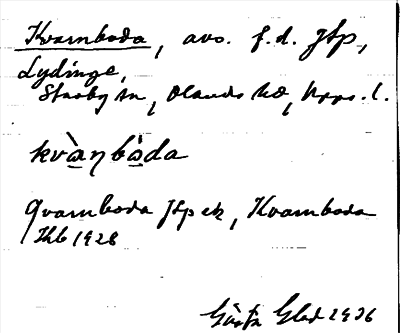 Kvarnboda, avs. f.d. Jtp,
Lydinge,
Stavby sn, Olands hd, Upps. l.
kvàɳbòda
Qvarnboda Jtp ek, Kvarnboda
Hkb 1928
Gösta Glad 1936